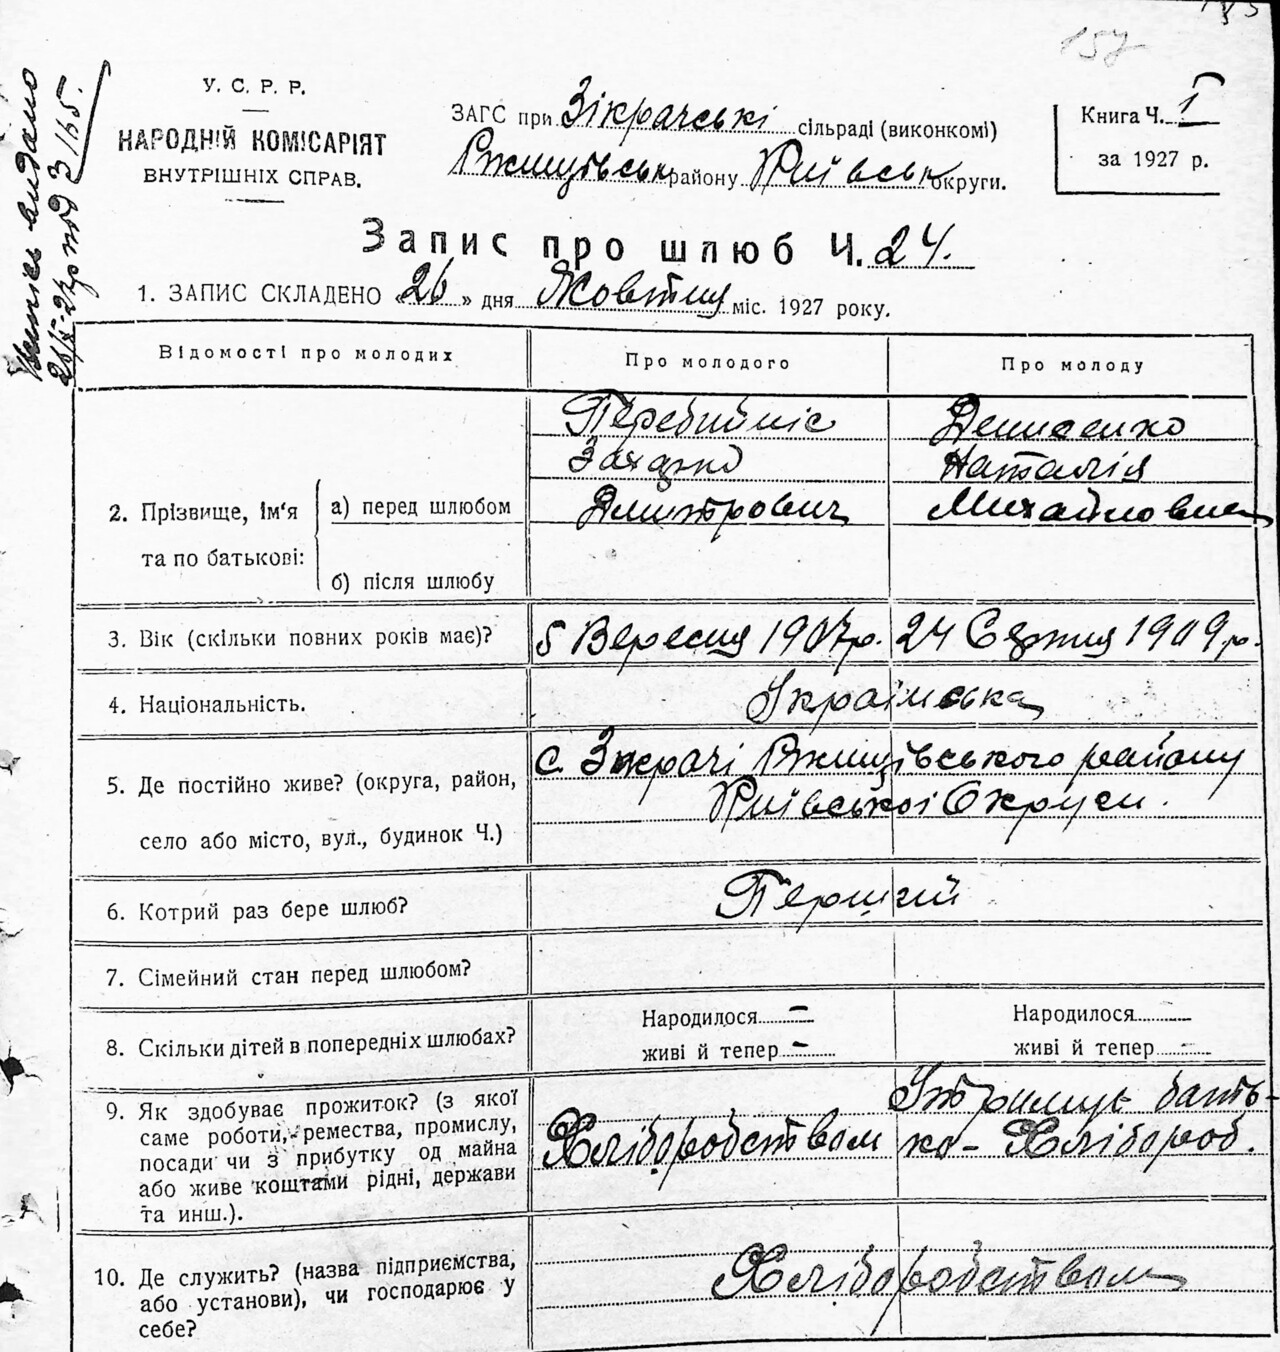 157
У. С. Р. Р.
НАРОДНІЙ КОМІСАРІЯТ
ВНУТРІШНІХ СПРАВ.
ЗАГС при Зікрачські сільраді (виконкомі)
Ржищівськ району Київськ округи.
Книга Ч. I
за 1927 р.
Виписъ видано
Запис про шлюб Ч. 24.
1. ЗАПИС СКЛАДЕНО „26" дня Жовтня міс. 1927 року.
Відомості про молодих Про молодого Про молоду
Перебийніс Денисенко
Наталія
2. Прізвище, ім'я а) перед шлюбом Дмитрович Михайловна
та по батькові:
б) після шлюбу
3. Вік (скільки повних років має)? 5 Вересня 1907р. 24 Серпня 1909 р.
4. Національність. Українська
с. Зікрачі Ржищівського району
5. Де постійно живе? (округа, район, Київської Округи.
село або місто, вул., будинок Ч.)
6. Котрий раз бере шлюб? Перший
7. Сімейний стан перед шлюбом?
8. Скільки дітей в попередніх шлюбах? Народилося – Народилося
живі й тепер – живі й тепер –
9. Як здобуває прожиток? (з якої Утримує бать-
саме роботи, ремества, промислу, Хліборобством ко - Хлібороб.
посади чи з прибутку од майна
або живе коштами рідні, держави
та инш.).
10. Де служить? (назва підприємства, Хліборобством
або установи), чи господарює у
себе?